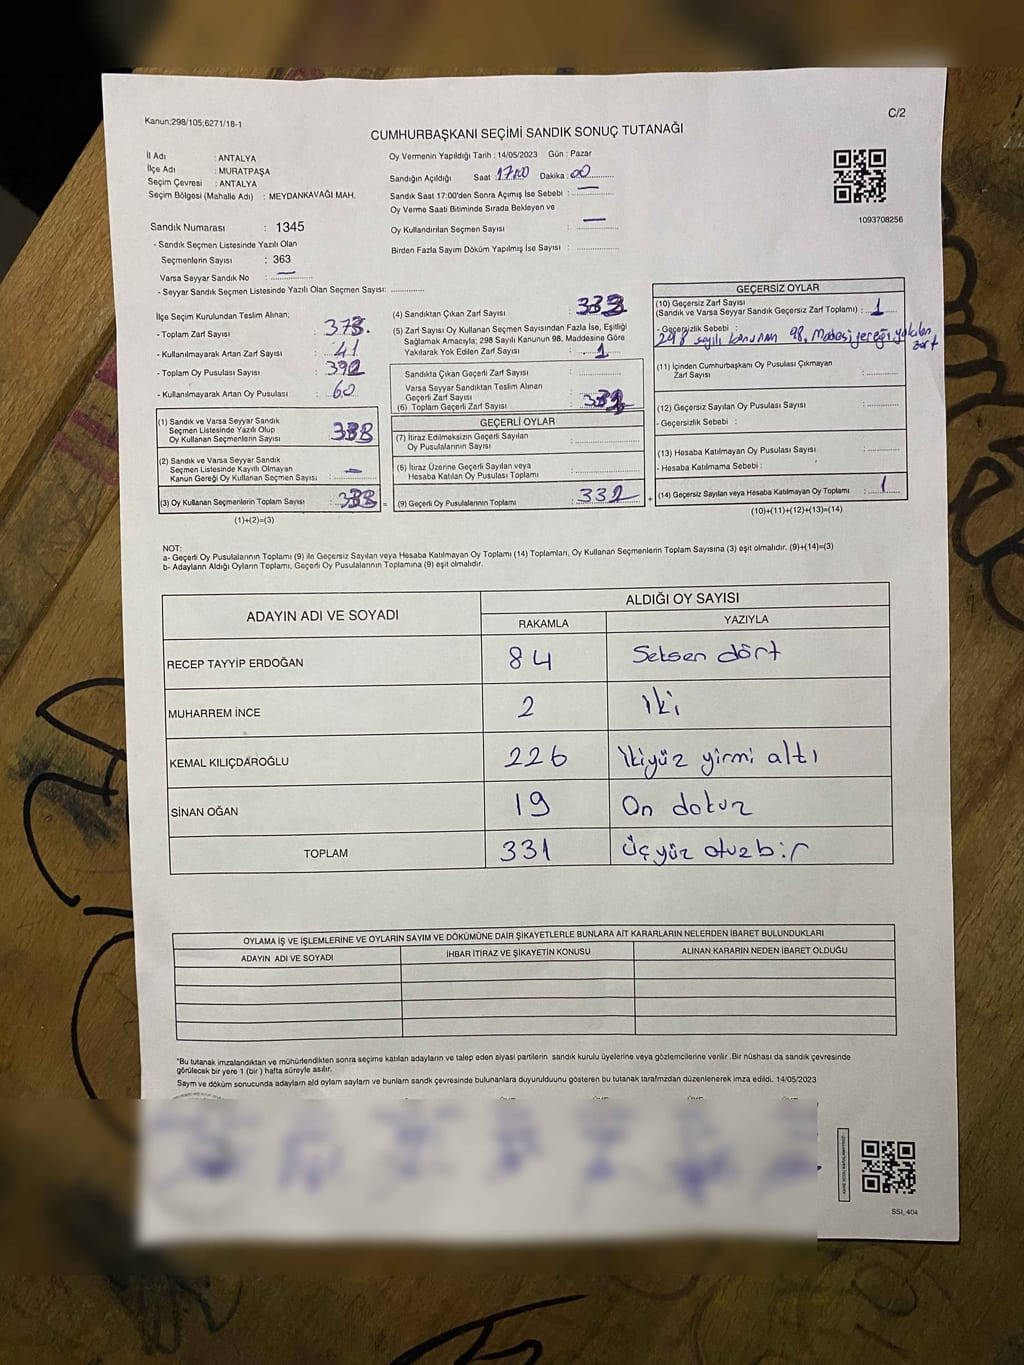 Kanun;298/105;6271/18-1
C/2
CUMHURBAŞKANI SEÇİMİ SANDIK SONUÇ TUTANAĞI
İl Adı : ANTALYA
İlçe Adı : MURATPAŞA
Seçim Çevresi : ANTALYA
Seçim Bölgesi (Mahalle Adı) : MEYDANKAVAĞI MAH.
Oy Vermenin Yapıldığı Tarih : 14/05/2023 Gün : Pazar
Sandığın Açıldığı Saat 17:00 Dakika : 00
Sandık Saat 17:00'den Sonra Açımış İse Sebebi : —
Oy Verme Saati Bitiminde Sırada Bekleyen ve
Oy Kullandırılan Seçmen Sayısı : —
Birden Fazla Sayım Döküm Yapılmış İse Sayısı :
1093708256
Sandık Numarası : 1345
- Sandık Seçmen Listesinde Yazılı Olan
Seçmenlerin Sayısı : 363
Varsa Seyyar Sandık No : —
- Seyyar Sandık Seçmen Listesinde Yazılı Olan Seçmen Sayısı:
İlçe Seçim Kurulundan Teslim Alınan;
- Toplam Zarf Sayısı : 373.
- Kullanılmayarak Artan Zarf Sayısı : 41
- Toplam Oy Pusulası Sayısı :
- Kullanılmayarak Artan Oy Pusulası : 60
(1) Sandık ve Varsa Seyyar Sandık
Seçmen Listesinde Yazılı Olup
Oy Kullanan Seçmenlerin Sayısı :
(2) Sandık ve Varsa Seyyar Sandık
Seçmen Listesinde Kayıtlı Olmayan
Kanun Gereği Oy Kullanan Seçmen Sayısı : —
(3) Oy Kullanan Seçmenlerin Toplam Sayısı :
(1)+(2)=(3)
(4) Sandıktan Çıkan Zarf Sayısı : 333
(5) Zarf Sayısı Oy Kullanan Seçmen Sayısından Fazla İse, Eşitliği
Sağlamak Amacıyla; 298 Sayılı Kanunun 98. Maddesine Göre
Yakılarak Yok Edilen Zarf Sayısı : 1
Sandıkta Çıkan Geçerli Zarf Sayısı :
Varsa Seyyar Sandıktan Teslim Alınan
Geçerli Zarf Sayısı :
(6) Toplam Geçerli Zarf Sayısı :
GEÇERLİ OYLAR
(7) İtiraz Edilmeksizin Geçerli Sayılan
Oy Pusulalarının Sayısı :
(8) İtiraz Üzerine Geçerli Sayılan veya
Hesaba Katılan Oy Pusulası Toplamı :
(9) Geçerli Oy Pusulalarının Toplamı :
GEÇERSİZ OYLAR
(10) Geçersiz Zarf Sayısı
(Sandık ve Varsa Seyyar Sandık Geçersiz Zarf Toplamı) : 1
- Geçersizlik Sebebi :
298 sayılı kanunun 98. Maddesi gereği yakılan
zarf
(11) İçinden Cumhurbaşkanı Oy Pusulası Çıkmayan
Zarf Sayısı :
(12) Geçersiz Sayılan Oy Pusulası Sayısı :
- Geçersizlik Sebebi :
(13) Hesaba Katılmayan Oy Pusulası Sayısı :
- Hesaba Katılmama Sebebi :
(14) Geçersiz Sayılan veya Hesaba Katılmayan Oy Toplamı : 1
(10)+(11)+(12)+(13)=(14)
NOT:
a- Geçerli Oy Pusulalarının Toplamı (9) ile Geçersiz Sayılan veya Hesaba Katılmayan Oy Toplamı (14) Toplamları, Oy Kullanan Seçmenlerin Toplam Sayısına (3) eşit olmalıdır. (9)+(14)=(3)
b- Adayların Aldığı Oyların Toplamı, Geçerli Oy Pusulalarının Toplamına (9) eşit olmalıdır.
ADAYIN ADI VE SOYADI
ALDIĞI OY SAYISI
RAKAMLA YAZIYLA
RECEP TAYYİP ERDOĞAN 84 Seksen dört
MUHARREM İNCE 2 iki
KEMAL KILIÇDAROĞLU 226 ikiyüz yirmi altı
SİNAN OĞAN 19 On dokuz
TOPLAM 331 Üçyüz otuzbir
OYLAMA İŞ VE İŞLEMLERİNE VE OYLARIN SAYIM VE DÖKÜMÜNE DAİR ŞİKAYETLERLE BUNLARA AİT KARARLARIN NELERDEN İBARET BULUNDUKLARI
ADAYIN ADI VE SOYADI İHBAR İTİRAZ VE ŞİKAYETİN KONUSU ALINAN KARARIN NEDEN İBARET OLDUĞU
*Bu tutanak imzalandıktan ve mühürlendikten sonra seçime katılan adayların ve talep eden siyasi partilerin sandık kurulu üyelerine veya gözlemcilerine verilir .Bir nüshası da sandık çevresinde
görülecek bir yere 1 (bir ) hafta süreyle asılır.
Sayım ve döküm sonucunda adayların aldığı oyların sayıların ve bunların sandık çevresinde bulunanlara duyurulduğunu gösteren bu tutanak tarafımızdan düzenlenerek imza edildi. 14/05/2023
SSI_404